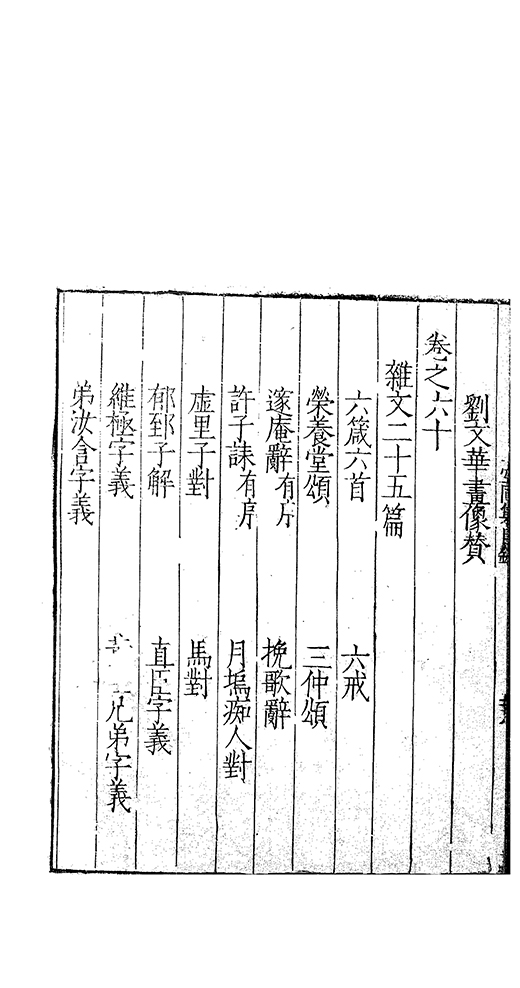 劉文華畫像贊
卷之六十
雜文二十五篇
六箴六首 六戒
榮養堂頌 三仲頌
邃庵辭有序 挽歌辭
許子誄有序 月塢痴人對
虛里子對 馬對
郁郅子解 直臣字義
維極字義 兄弟字義
弟汝含字義